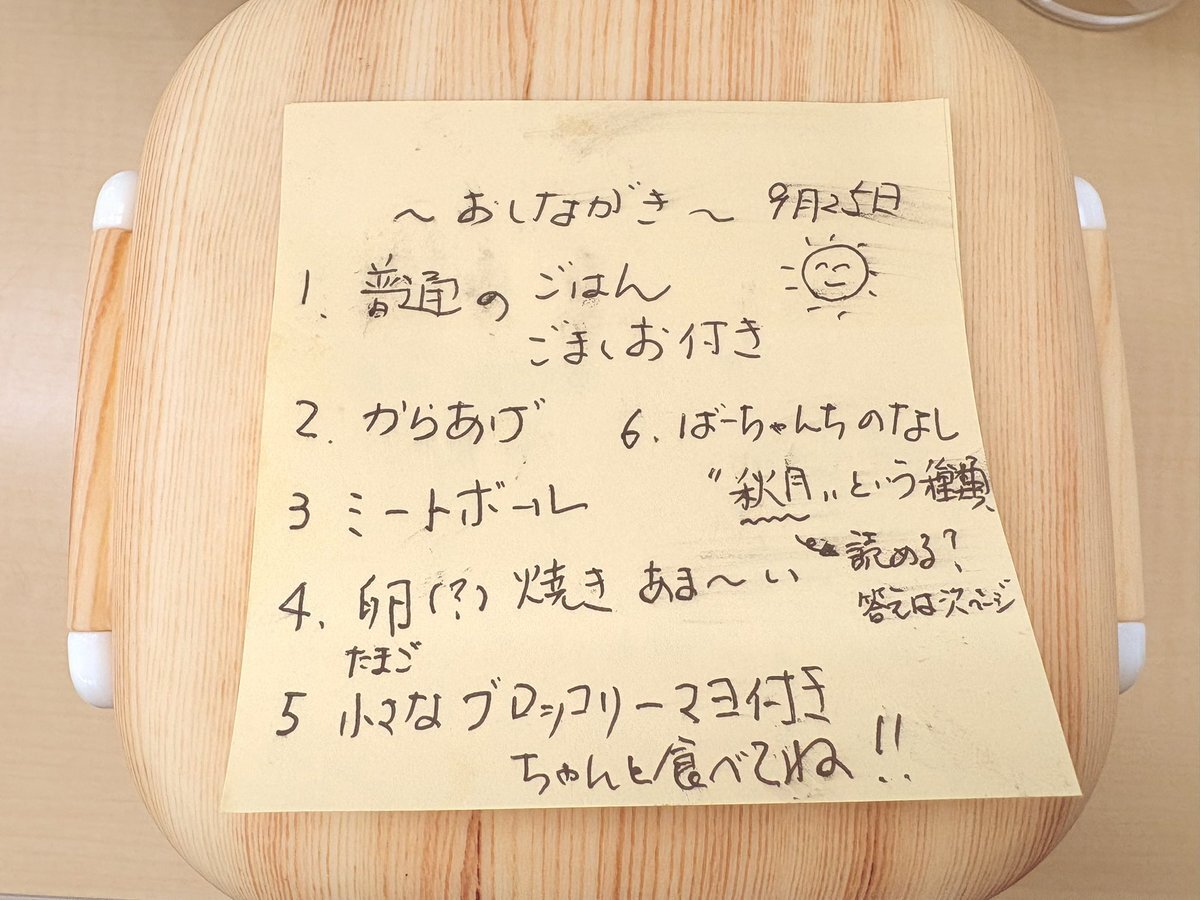 ～おしながき～ 9月25日
1. 普通のごはん
ごましお付き
2. からあげ
3 ミートボール
4. 卵(?)焼き あま～い
たまご
5 小さなブロッコリーマヨ付き
ちゃんと食べてね!!
6. ばーちゃんちのなし
"秋月"という種類
読める?
答えは次ページ